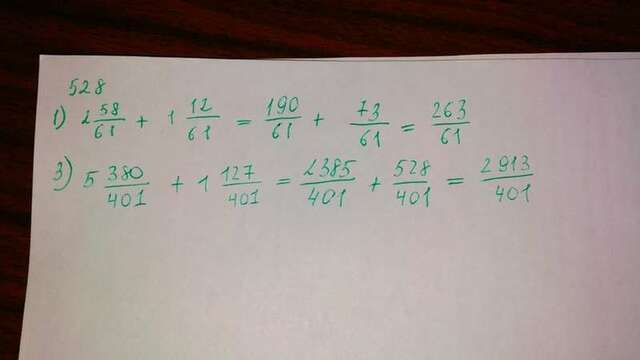 528
1) 2 58/61 + 1 12/61 = 190/61 + 73/61 = 263/61
3) 5 380/401 + 1 127/401 = 2385/401 + 528/401 = 2913/401